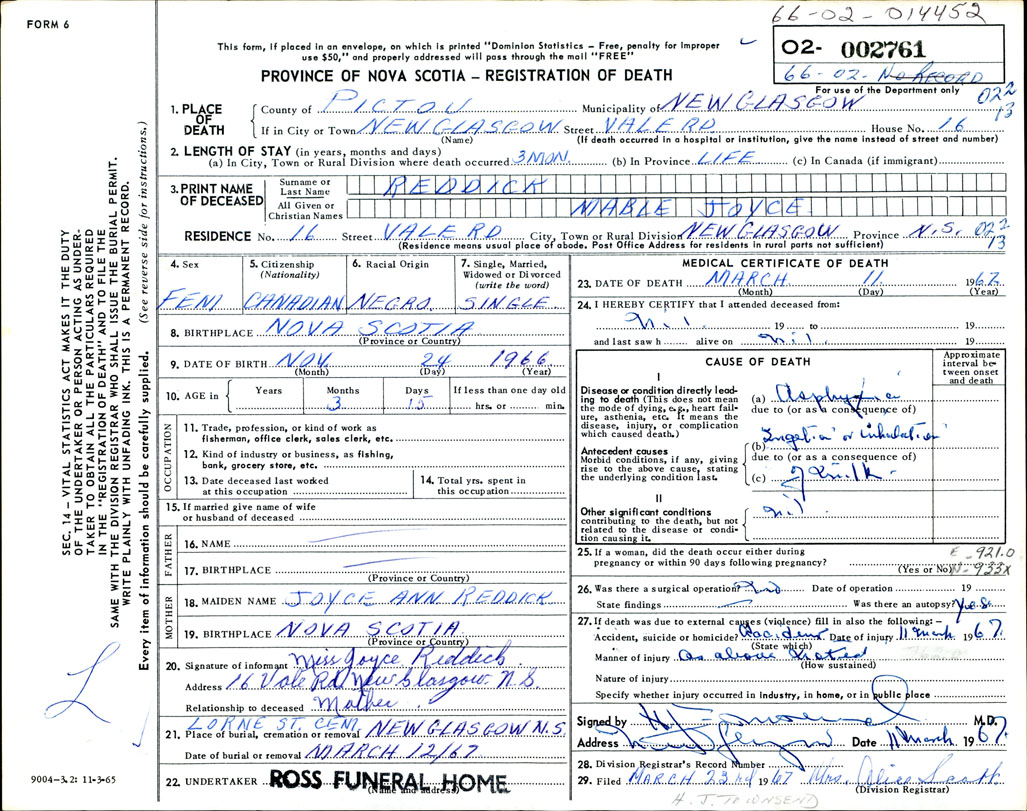 FORM 6
66-02-014452
This form, if placed in an envelope, on which is printed "Dominion Statistics – Free, penalty for improper
use $50," and properly addressed will pass through the mail "FREE"
02- 002761
66-02- NO RECORD
For use of the Department only
PROVINCE OF NOVA SCOTIA – REGISTRATION OF DEATH
022
13
1. PLACE OF DEATH
County of PICTOU Municipality of NEW GLASGOW
If in City or Town NEW GLASGOW Street VALE RD House No. 16
(Name) (If death occurred in a hospital or institution, give the name instead of street and number)
2. LENGTH OF STAY (in years, months and days)
(a) In City, Town or Rural Division where death occurred 3 MON. (b) In Province LIFE (c) In Canada (if immigrant)
3. PRINT NAME OF DECEASED
Surname or Last Name REDDICK
All Given or Christian Names MABLE JOYCE
RESIDENCE No. 16 Street VALE RD City, Town or Rural Division NEW GLASGOW Province N.S. 022
13
(Residence means usual place of abode. Post Office Address for residents in rural parts not sufficient)
4. Sex
FEM
5. Citizenship
(Nationality)
CANADIAN
6. Racial Origin
NEGRO
7. Single, Married,
Widowed or Divorced
(write the word)
SINGLE
8. BIRTHPLACE NOVA SCOTIA
(Province or Country)
9. DATE OF BIRTH NOV. 24 1966
(Month) (Day) (Year)
10. AGE in
Years Months Days If less than one day old
3 15 hrs. or min.
OCCUPATION
11. Trade, profession, or kind of work as
fisherman, office clerk, sales clerk, etc.
12. Kind of industry or business, as fishing,
bank, grocery store, etc.
13. Date deceased last worked
at this occupation
14. Total yrs. spent in
this occupation
15. If married give name of wife
or husband of deceased
FATHER
16. NAME
17. BIRTHPLACE
(Province or Country)
MOTHER
18. MAIDEN NAME JOYCE ANN REDDICK
19. BIRTHPLACE NOVA SCOTIA
(Province or Country)
20. Signature of informant Miss Joyce Reddick
Address 16 Vale Rd, New Glasgow. N.S.
Relationship to deceased Mother
LORNE ST. CEM
21. Place of burial, cremation or removal NEW GLASGOW N.S.
Date of burial or removal MARCH 12/67
22. UNDERTAKER ROSS FUNERAL HOME
(Name and address)
MEDICAL CERTIFICATE OF DEATH
23. DATE OF DEATH MARCH 11 1967
(Month) (Day) (Year)
24. I HEREBY CERTIFY that I attended deceased from:
Nil 19 to 19
and last saw h alive on nil 19
CAUSE OF DEATH
Approximate
interval be-
tween onset
and death
I
Disease or condition directly lead-
ing to death (This does not mean
the mode of dying, e.g., heart fail-
ure, asthenia, etc. It means the
disease, injury, or complication
which caused death.)
(a) Asphyxia
due to (or as a consequence of)
Antecedent causes
Morbid conditions, if any, giving
rise to the above cause, stating
the underlying condition last.
(b) Ingestion or inhalation
due to (or as a consequence of)
(c) of milk
II
Other significant conditions
contributing to the death, but not
related to the disease or condi-
tion causing it.
nil
25. If a woman, did the death occur either during
pregnancy or within 90 days following pregnancy?
(Yes or No)
E-921.0
N-933X
26. Was there a surgical operation? No Date of operation 19
State findings Was there an autopsy? Yes.
27. If death was due to external causes (violence) fill in also the following: –
Accident, suicide or homicide? Accident Date of injury 11 March 1967.
(State which)
Manner of injury as above noted
(How sustained)
Nature of injury
Specify whether injury occurred in industry, in home, or in public place
Signed by M.D.
Address Date 11 March 1967.
28. Division Registrar's Record Number
29. Filed MARCH 23rd 1967 Mrs. Alice Scott
(Division Registrar)
H. J. TOWNSEND
SEC. 14 – VITAL STATISTICS ACT MAKES IT THE DUTY
OF THE UNDERTAKER OR PERSON ACTING AS UNDER-
TAKER TO OBTAIN ALL THE PARTICULARS REQUIRED
IN THE "REGISTRATION OF DEATH" AND TO FILE THE
SAME WITH THE DIVISION REGISTRAR WHO SHALL ISSUE THE BURIAL PERMIT.
WRITE PLAINLY WITH UNFADING INK. THIS IS A PERMANENT RECORD.
Every item of information should be carefully supplied. (See reverse side for instructions.)
9004-3.2: 11-3-65